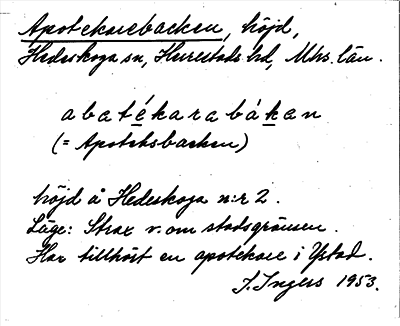 Apotekarebacken, höjd,
Hedeskoga sn, Herrestads hd, Mhs. län.
abatékarabákan
(= Apoteksbacken)
höjd å Hedeskoga n:r 2.
Läge: Strax v. om stadsgränsen.
Har tillhört en apotekare i Ystad.
I. Ingers 1953.